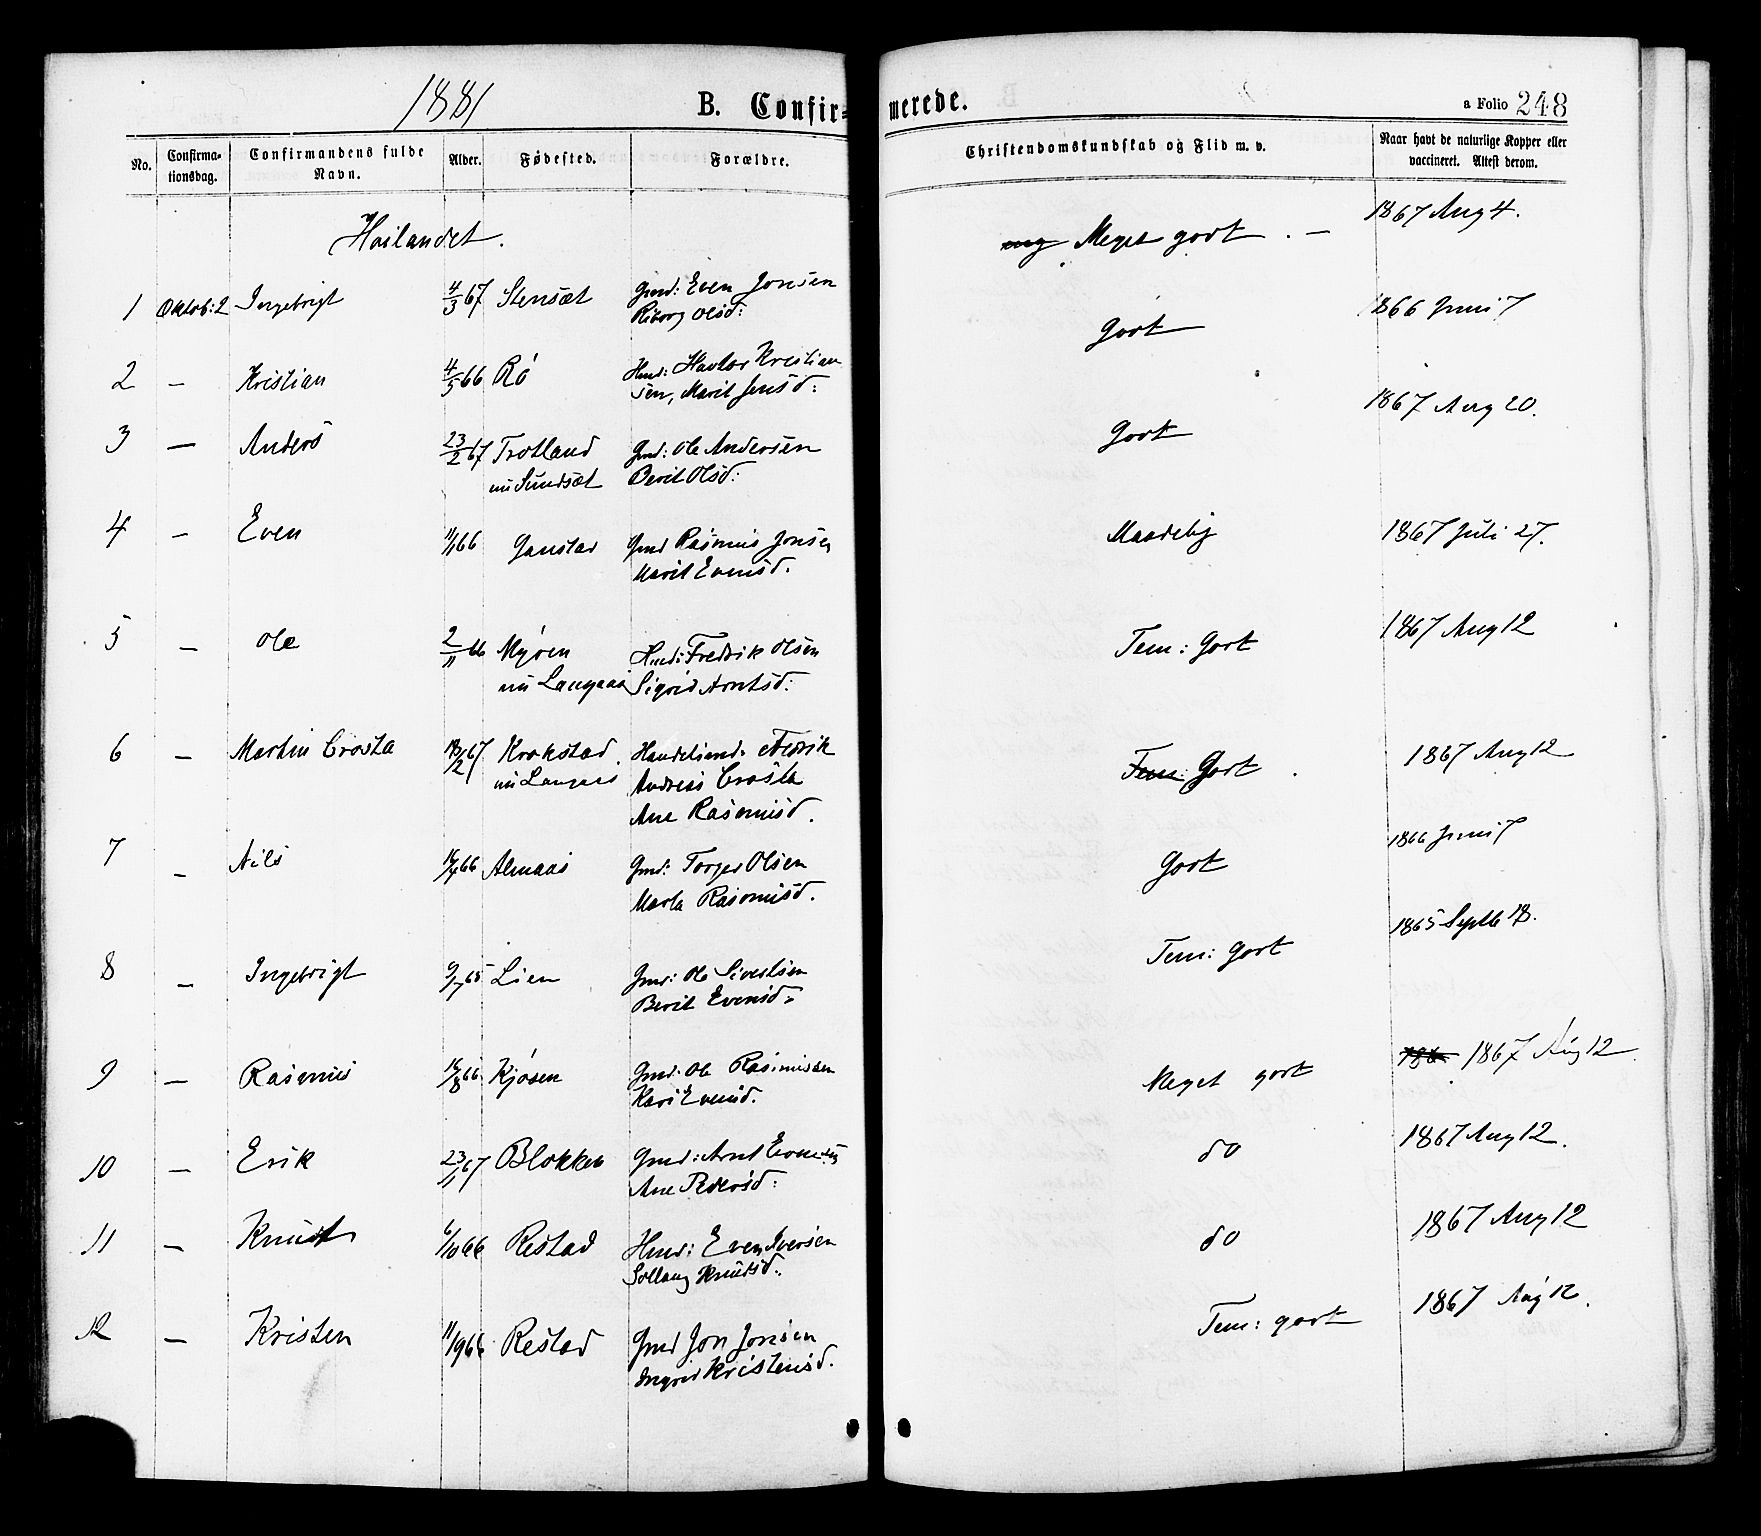 1881
B. Confir=
merede.
a Folio 248
No.
Confirma-
tionsdag.
Confirmandens fulde
Navn.
Alder.
Fødested.
Forældre.
Christendomskundskab og Flid m. v.
Naar havt de naturlige Kopper eller
vaccineret. Attest derom.
Høilandet.
1 Oktob: 2 Ingebrigt 4/3 67 Stensæt Gmd: Even Jonsen
Riborg Olsd:
Meget godt . — 1867 Aug 4.
2 — Kristian 4/5 66 Rö Hmd: Havlor Kristian
sen, Marit Jensd:
Godt 1866 Juni 7
3 — Anders 23/2 67 Trotland Gmd: Ole Andersen
nu Sundsæt Berit Olsd:
Godt 1867 Aug 20.
4 — Even 11/11 66 Ganstad Gmd Rasmus Jonsen
Marit Evensd.
Maadelig 1867 Juli 27.
5 — Ole 2/11 66 Myren Hmd: Fredrik Olsen
nu Langaas Sigrid Arntsd:
Tem: Godt 1867 Aug 12
6 — Martin Crosta 18/2 67 Krokstad. Handelsmd. Fredrik
nu Langaas Andreas Crosta
Ane Rasmusd.
Tem: Godt . 1867 Aug 12
7 — Nils 66 Almaas Gmd: Torger Olsen
Marta Rasmusd.
Godt 1866 Juni 7
8 — Ingebrigt 9/7 65 Lien Gmd: Ole Sivertsen
Berit Evensd.
Tem: godt 1865 Septb 18.
9 — Rasmus 14/8 66 Kjösen Gmd: Ole Rasmussen
Kari Evensd.
Meget godt 1867 Aug 12
10 — Erik 23/11 67 Blokken Gmd: Arnt Evensen
Ane Pedersd:
do 1867 Aug 12.
11 — Knudt 6/10 66 Restad Hmd: Even Iversen
Sollaug Knudsd:
do 1867 Aug 12
12 — Kristen 11/9 66 Restad Gmd Jon Jonsen
Ingrid Kristensd.
Tem: godt 1867 Aug 12.